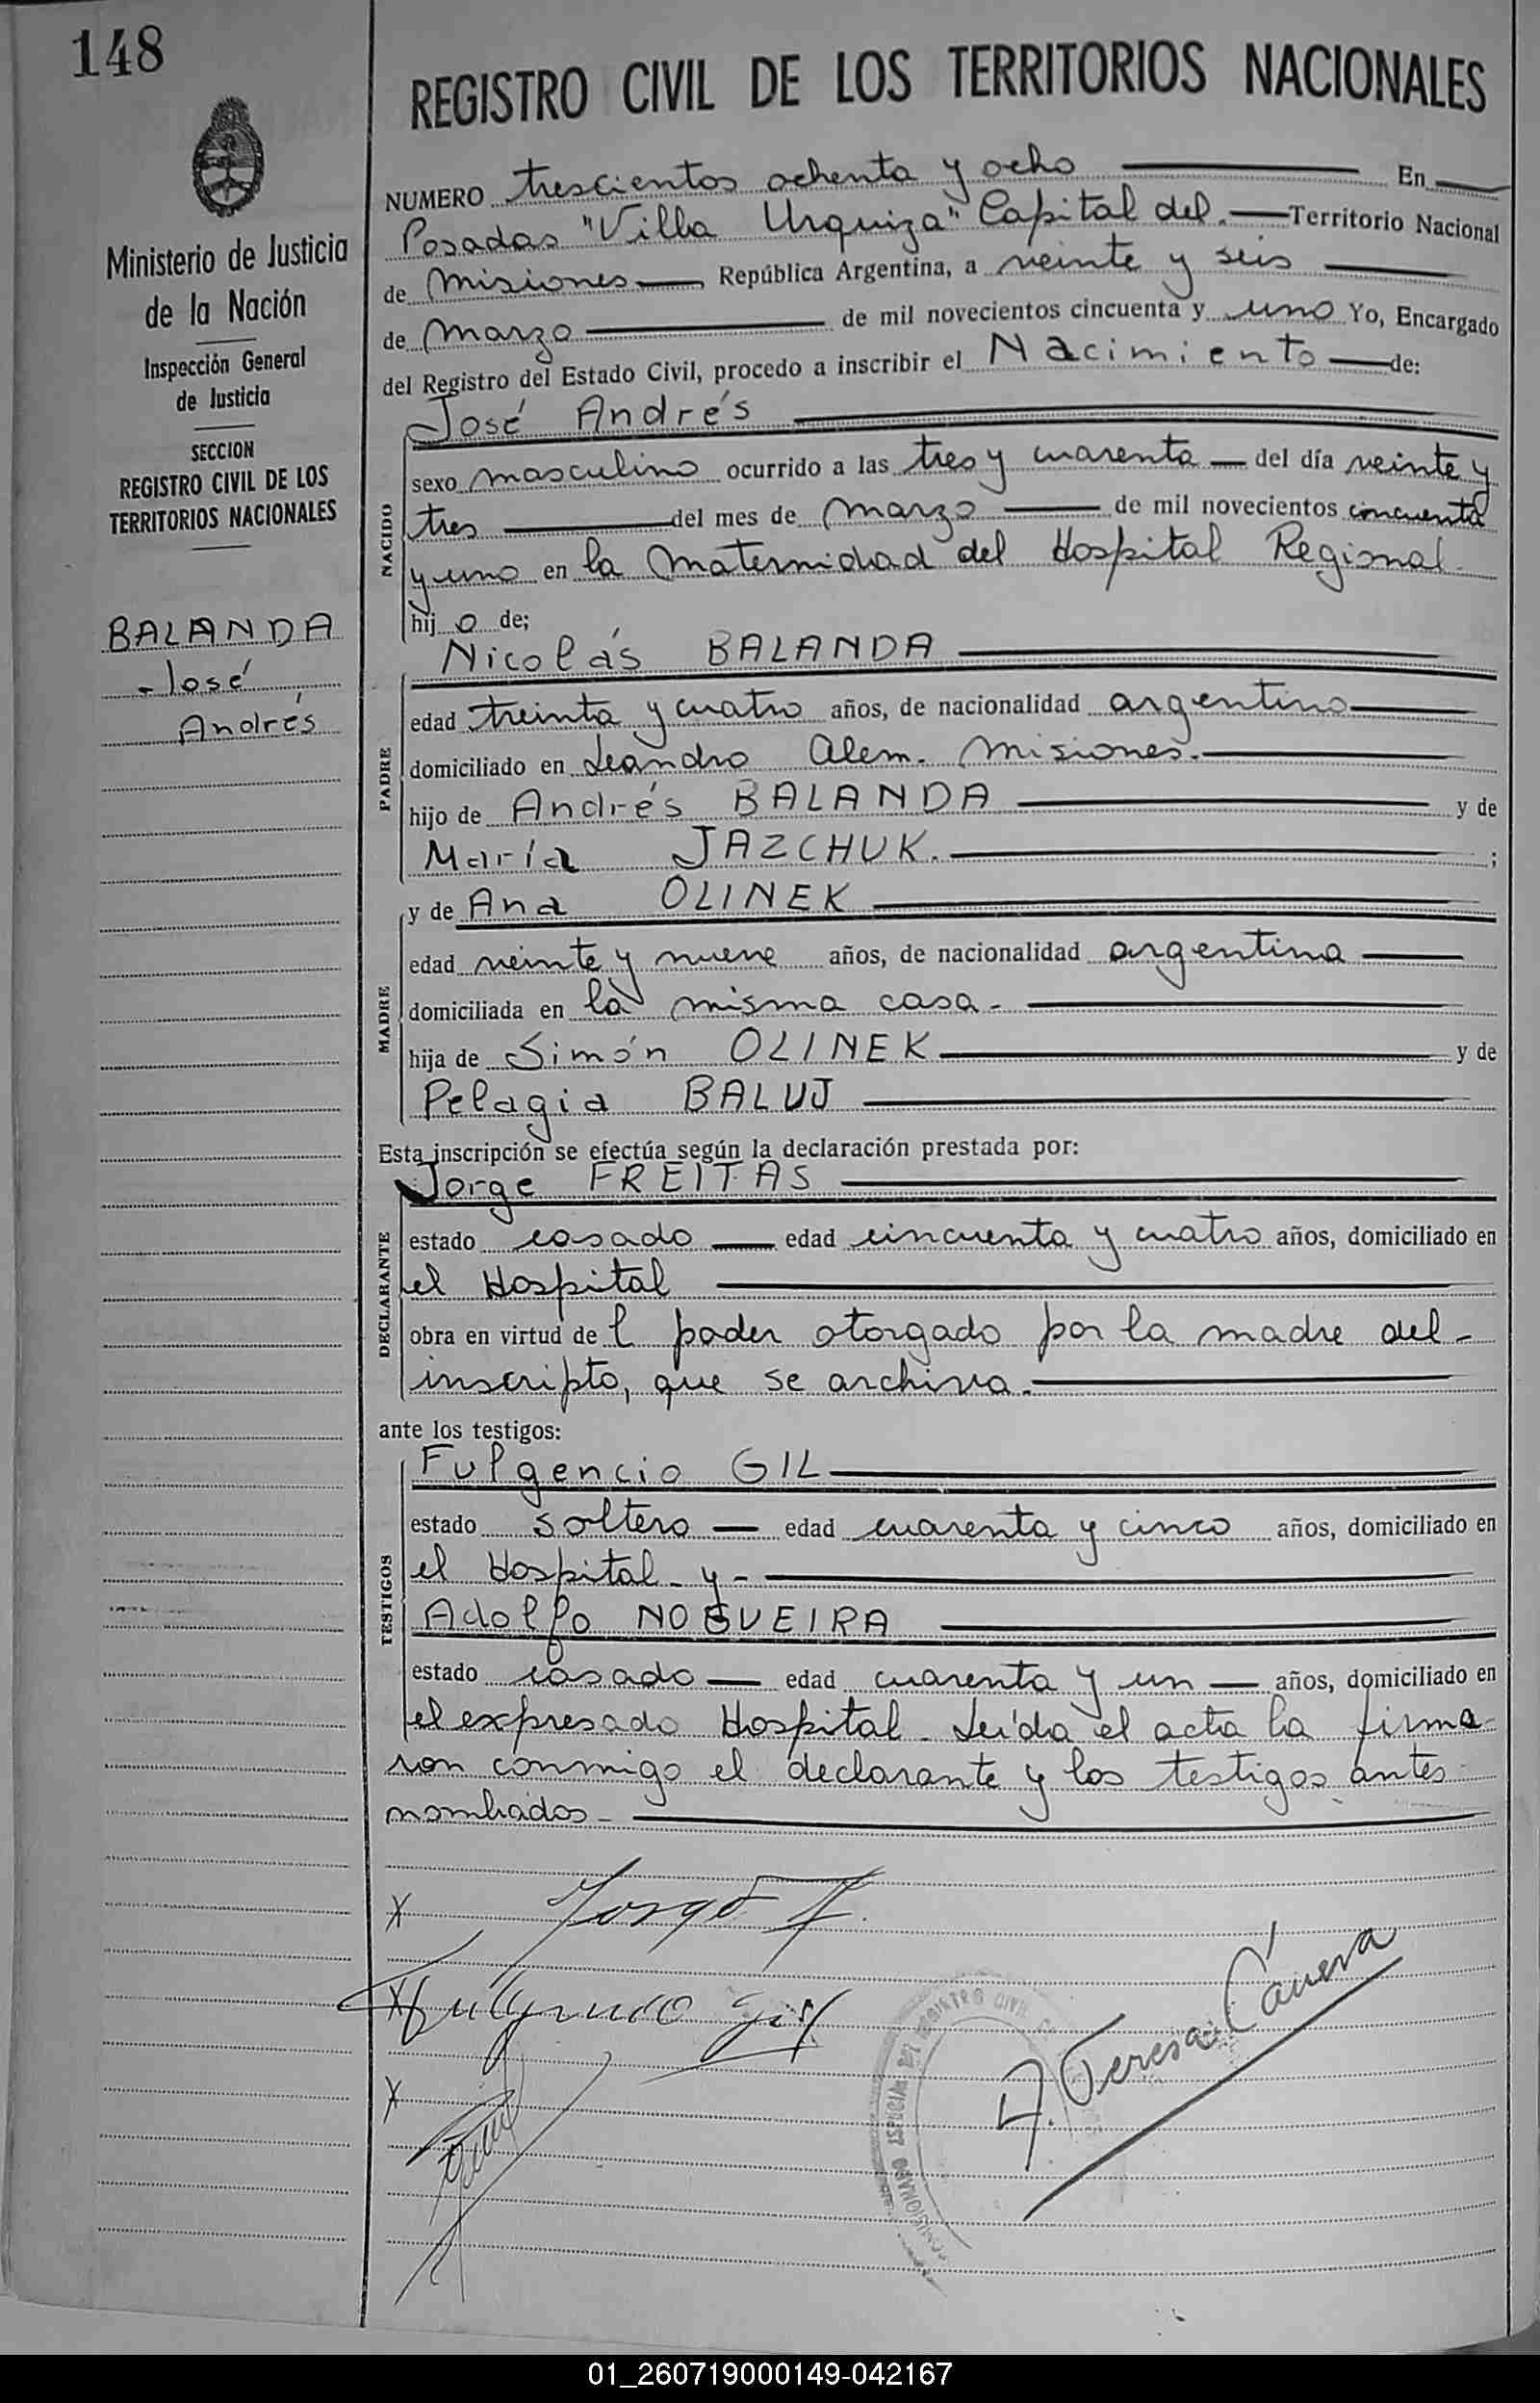 148
REGISTRO CIVIL DE LOS TERRITORIOS NACIONALES
Ministerio de Justicia
de la Nación
Inspección General
de Justicia
SECCION
REGISTRO CIVIL DE LOS
TERRITORIOS NACIONALES
BALANDA
José
Andrés
NUMERO trescientos ochenta y ocho En
Posadas "Villa Urquiza" Capital del. Territorio Nacional
de Misiones República Argentina, a veinte y seis
de Marzo de mil novecientos cincuenta y uno Yo, Encargado
del Registro del Estado Civil, procedo a inscribir el Nacimiento de:
José Andrés
NACIDO
sexo masculino ocurrido a las tres y cuarenta del día veinte y
tres del mes de marzo de mil novecientos cincuenta
y uno en la Maternidad del Hospital Regional
hijo de;
Nicolás BALANDA
PADRE
edad treinta y cuatro años, de nacionalidad argentino
domiciliado en Leandro Alem. Misiones.
hijo de Andrés BALANDA y de
María JAZCHUK. ;
y de Ana OLINEK
MADRE
edad veinte y nueve años, de nacionalidad argentina
domiciliada en la misma casa-
hija de Simón OLINEK y de
Pelagia BALUJ
Esta inscripción se efectúa según la declaración prestada por:
Jorge FREITAS
DECLARANTE
estado casado edad cincuenta y cuatro años, domiciliado en
el Hospital
obra en virtud del poder otorgado por la madre del-
inscripto, que se archiva.
ante los testigos:
Fulgencio GIL
TESTIGOS
estado soltero edad cuarenta y cinco años, domiciliado en
el Hospital - y -
Adolfo NOGUEIRA
estado casado edad cuarenta y un años, domiciliado en
el expresado Hospital. Leída el acta la firma-
ron conmigo el declarante y los testigos antes
nombrados-
X Jorge F.
X Fulgencio Gil
X
A. Teresa Canera
REGISTRO CIVIL
01_260719000149-042167